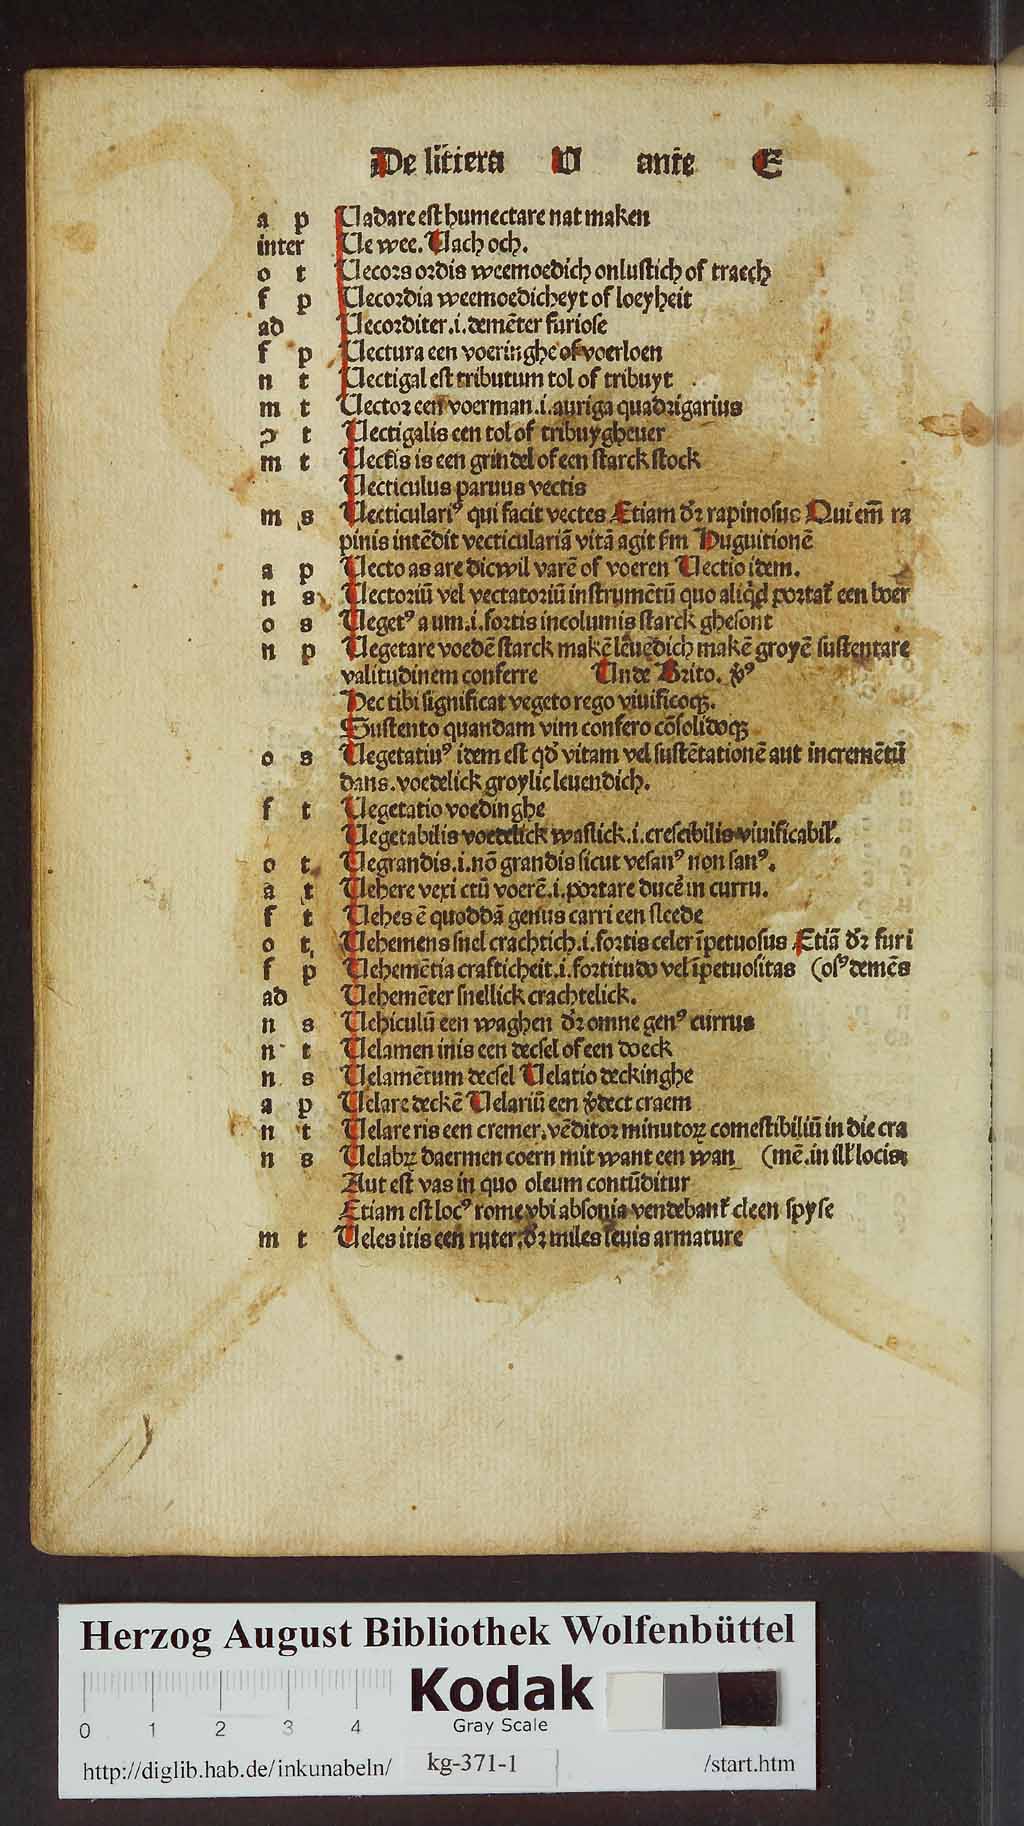 De littera U ante E
a p Uadare est humectare nat maken
inter Ue wee. Uach och.
o t Uecors ordis weemoedich onlustich of traech
f p Uecordia weemoedicheyt of loeyheit
ad Uecorditer .i. demēter furiose
f p Uectura een voeringhe of voerloen
n t Uectigal est tributum tol of tribuyt
m t Uector een voerman .i. auriga quadrigarius
ɔ t Uectigalis een tol of tribuygheuer
m t Uectis is een grindel of een starck stock
Uecticulus paruus vectis
m s Uecticulariꝰ qui facit vectes Etiam dr̄ rapinosus Qui em̄ ra
pinis intēdit vecticulariā vitā agit fm Huguitionē
a p Uecto as are dicwil varē of voeren Uectio idem.
n s Uectoriū vel vectatoriū instrumētū quo aliqd̄ portat᷑ een boer
o s Uegetꝰ a um .i. fortis incolumis starck ghesont
n p Uegetare voedē starck makē leuēdich makē groyē sustentare
valitudinem conferre Unde Brito. v̄ꝰ
Hec tibi significat vegeto rego viuificoqꝫ.
Sustento quandam vim confero cōsolidoqꝫ
o s Uegetatiuꝰ idem est qd̄ vitam vel sustētationē aut incremētū
dans. voedelick groylic leuendich.
f t Uegetatio voedinghe
Uegetabilis voedelick waslick .i. crescibilis viuificabil᷑.
o t Uegrandis .i. nō grandis sicut vesanꝰ non sanꝰ.
a t Uehere vexi ctū voerē .i. portare ducere in curru.
f t Uehes ē quoddā genus carri een sleede
o t Uehemens snel crachtich .i. fortis celer īpetuosus Etiā dr̄ furi
f p Uehemētia crafticheit .i. fortitudo vel īpetuositas (osꝰ demēs
ad Uehemēter snellick crachtelick.
n s Uehiculū een waghen dr̄ omne genꝰ currus
n t Uelamen inis een decsel of een doeck
n s Uelamētum decsel Uelatio deckinghe
a p Uelare deckē Uelariū een v̄dect craem
n t Uelare ris een cremer. vēditor minutoꝝ comestibiliū in die cra
n s Uelabꝝ daermen coern mit want een wan (mē. in ill᷑ locis
Aut est vas in quo oleum contūditur
Etiam est locꝰ rome vbi absonia vendebant᷑ cleen spyse
m t Ueles itis een ruter. dr̄ miles leuis armature
Herzog August Bibliothek Wolfenbüttel
Kodak
Gray Scale
0 1 2 3 4
http://diglib.hab.de/inkunabeln/ kg-371-1 /start.htm